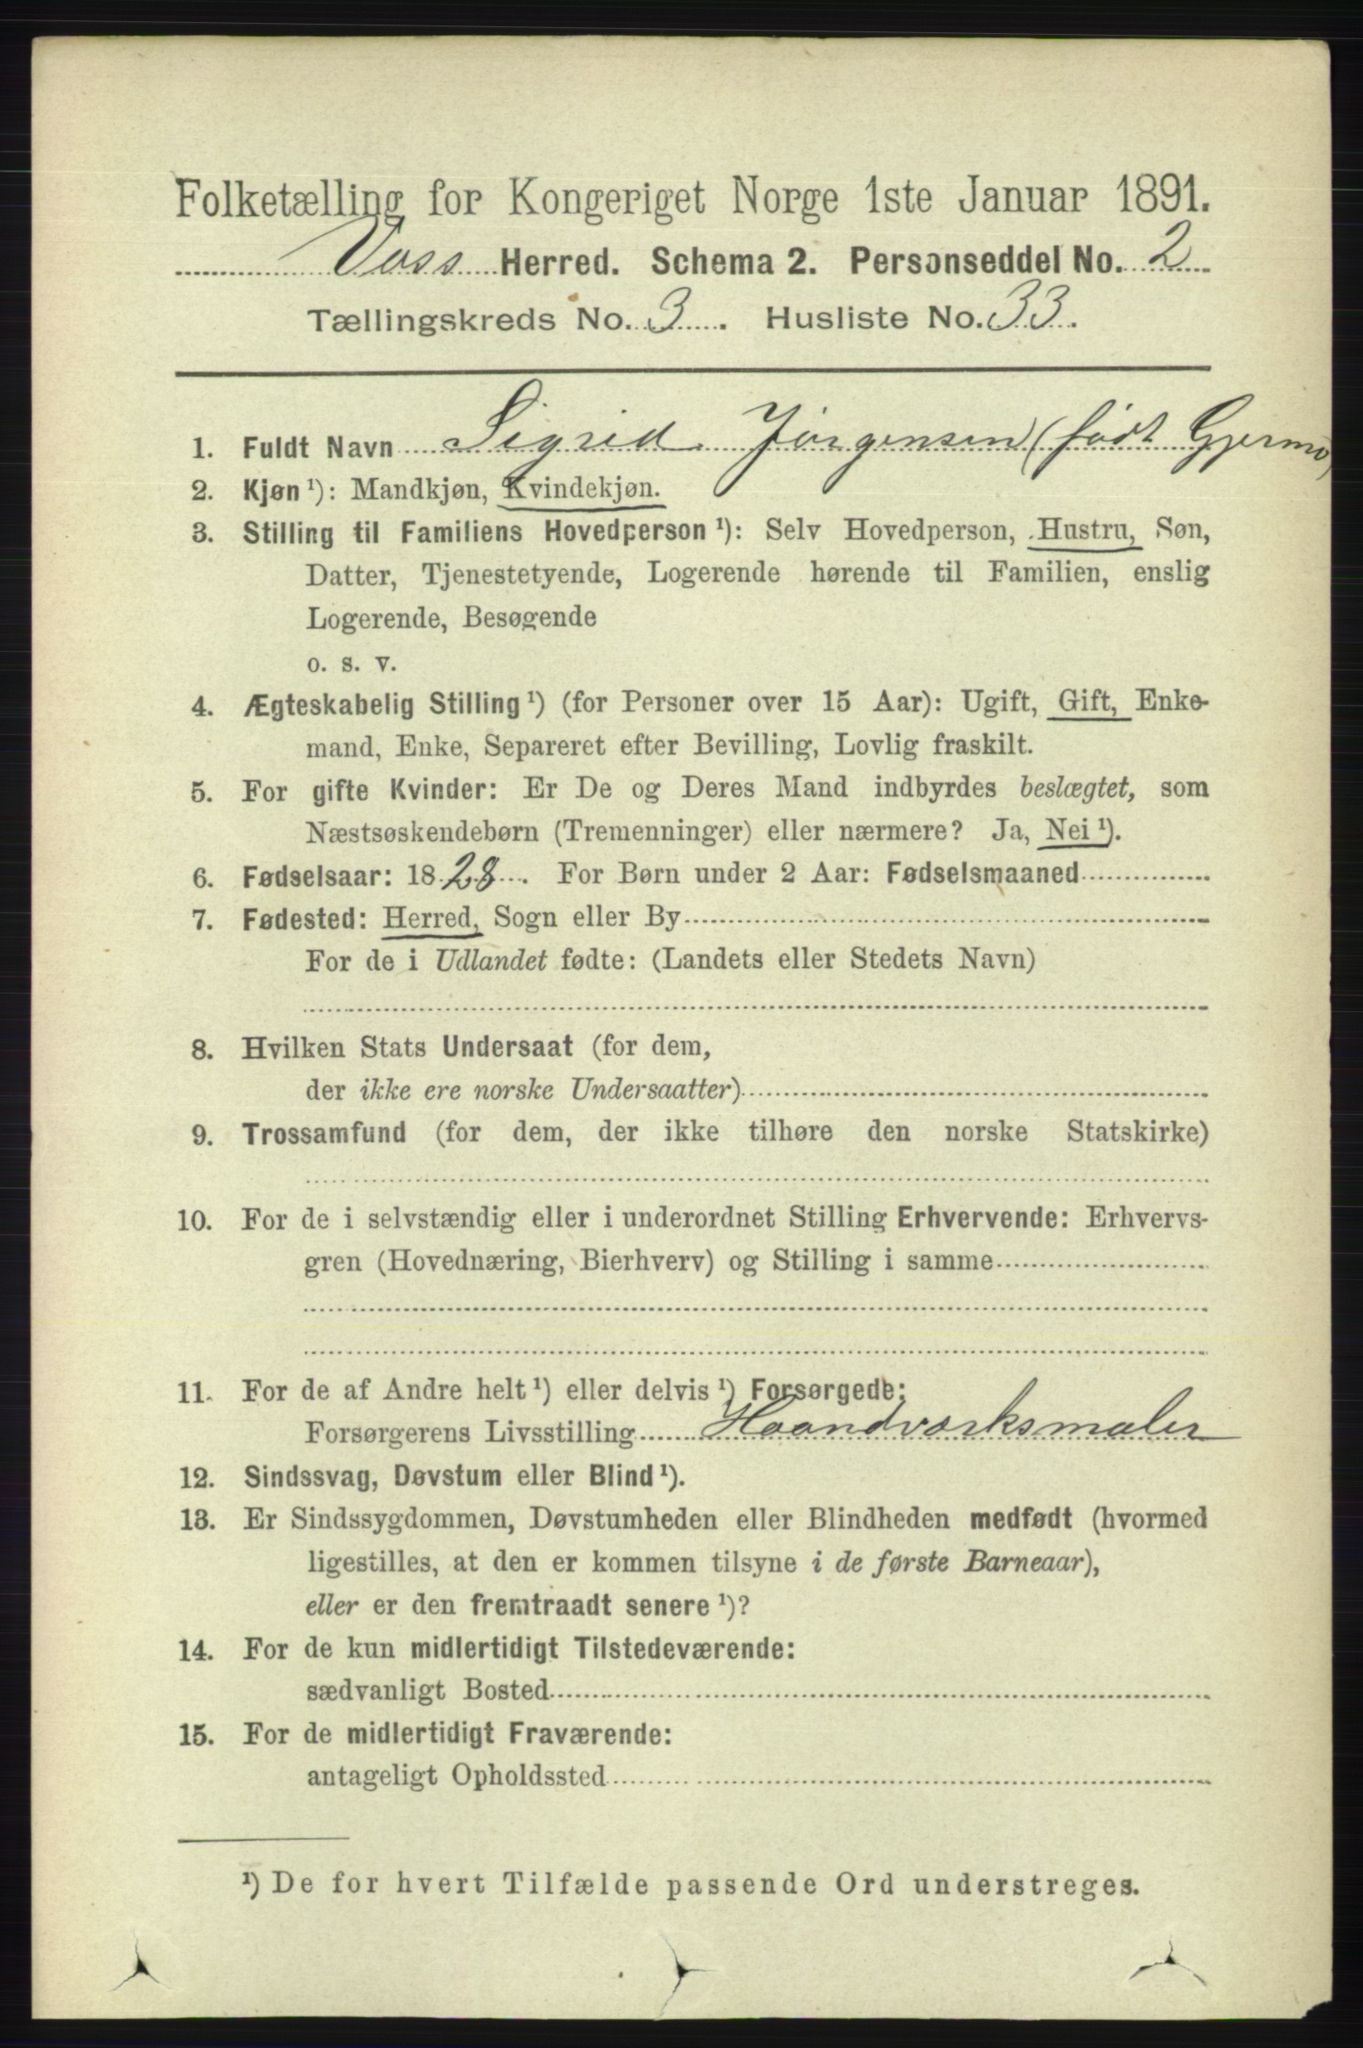 Folketælling for Kongeriget Norge 1ste Januar 1891.
Voss Herred. Schema 2. Personseddel No. 2
Tællingskreds No. 3. Husliste No. 33.
1. Fuldt Navn Sigrid Jørgensen (født Gjermo)
2. Kjøn ¹): Mandkjøn, Kvindekjøn.
3. Stilling til Familiens Hovedperson ¹): Selv Hovedperson, Hustru, Søn,
Datter, Tjenestetyende, Logerende hørende til Familien, enslig
Logerende, Besøgende
o. s. v.
4. Ægteskabelig Stilling ¹) (for Personer over 15 Aar): Ugift, Gift, Enke-
mand, Enke, Separeret efter Bevilling, Lovlig fraskilt.
5. For gifte Kvinder: Er De og Deres Mand indbyrdes beslægtet, som
Næstsøskendebørn (Tremenninger) eller nærmere? Ja, Nei ¹).
6. Fødselsaar: 1828. For Børn under 2 Aar: Fødselsmaaned
7. Fødested: Herred, Sogn eller By
For de i Udlandet fødte: (Landets eller Stedets Navn)
8. Hvilken Stats Undersaat (for dem,
der ikke ere norske Undersaatter)
9. Trossamfund (for dem, der ikke tilhøre den norske Statskirke)
10. For de i selvstændig eller i underordnet Stilling Erhvervende: Erhvervs-
gren (Hovednæring, Bierhverv) og Stilling i samme
11. For de af Andre helt ¹) eller delvis ¹) Forsørgede:
Forsørgerens Livsstilling Haandværksmaler
12. Sindssvag, Døvstum eller Blind ¹).
13. Er Sindssygdommen, Døvstumheden eller Blindheden medfødt (hvormed
ligestilles, at den er kommen tilsyne i de første Barneaar),
eller er den fremtraadt senere ¹)?
14. For de kun midlertidigt Tilstedeværende:
sædvanligt Bosted
15. For de midlertidigt Fraværende:
antageligt Opholdssted
¹) De for hvert Tilfælde passende Ord understreges.